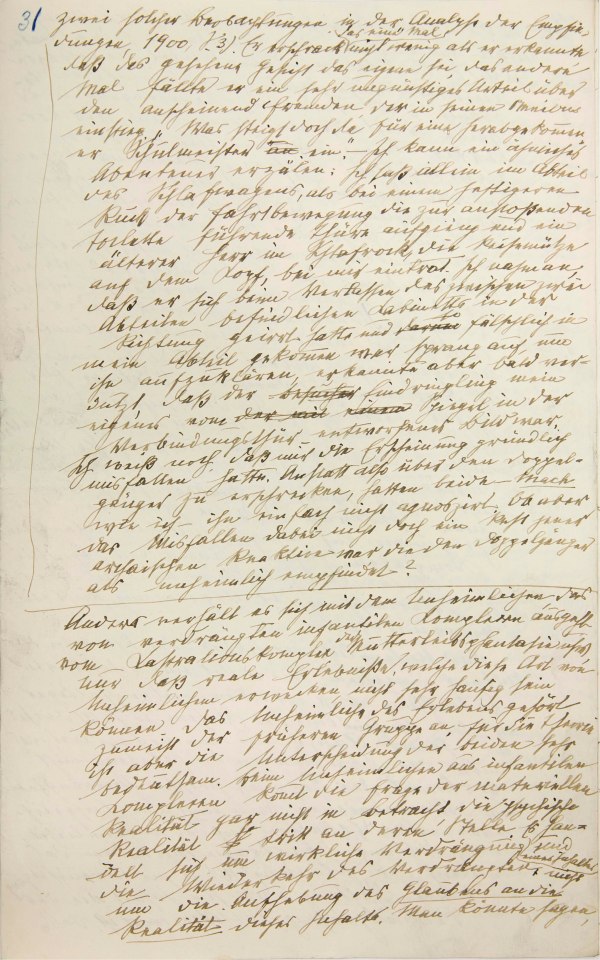 31
zwei solcher Beobachtungen in der Analyse der Empfin-
dungen, 1900, S. 3). Er erschrack das eine Mal nicht wenig als er erkannte
daß das gesehene Gesicht das eigene sei, das andere
Mal fällte er ein sehr ungünstiges Urteil über
den anscheinend Fremden, der in seinen
einstieg, „Was steigt doch da für ein herabgekommen
er Schulmeister ein". – Ich kann ein ähnliches
Abenteuer erzälen: Ich saß allein im Abteil
des Schlafwagens, als bei einem heftigeren
Ruck der Fahrtbewegung die zur anstoßenden
Toilette führende Thüre aufgieng und ein
älterer Herr im Schlafrock, die Reisemütze
auf dem Kopf, bei mir eintrat. Ich nahm an,
daß er sich beim Verlassen des zwischen zwei
Abteilen befindlichen Kabinetts in der
Richtung geirrt hatte und fälschlich in
mein Abteil gekommen war, sprang auf, um
ihn aufzuklären, erkannte aber bald ver-
dutzt, daß der Eindringling mein
eigenes vom Spiegel in der
Verbindungsthür entworfenes Bild war.
Ich weiß noch, daß mir die Erscheinung gründlich
misfallen hatte. Anstatt also über den Doppel-
gänger zu erschrecken, hatten beide – Mach
wie ich – ihn einfach nicht agnoszirt. Ob aber
das Misfallen dabei nicht doch ein Rest jener
archaischen Reaktion war, die den Doppelgänger
als unheimlich empfindet?
Anders verhält es sich mit dem Unheimlichen, das
von verdrängten infantilen Komplexen ausgeht
vom Kastrationskomplex, der Mutterleibsphantasie usw,
nur daß reale Erlebniße, welche diese Art von
Unheimlichem erwecken nicht sehr häufig sein
können. Das Unheimliche des Erlebens gehört
zumeist der früheren Gruppe an, für die Theorie
ist aber die Unterscheidung der beiden sehr
bedeutsam. Beim Unheimlichen aus infantilen
Komplexen komt die Frage der materiellen
Realität gar nicht in Betracht, die psychische
Realität tritt an deren Stelle. Es han-
delt sich um wirkliche Verdrängung eines Inhaltes und
die Wiederkehr des Verdrängten, nicht
um die Aufhebung des Glaubens an die
Realität dieses Inhalts. Man könnte sagen,